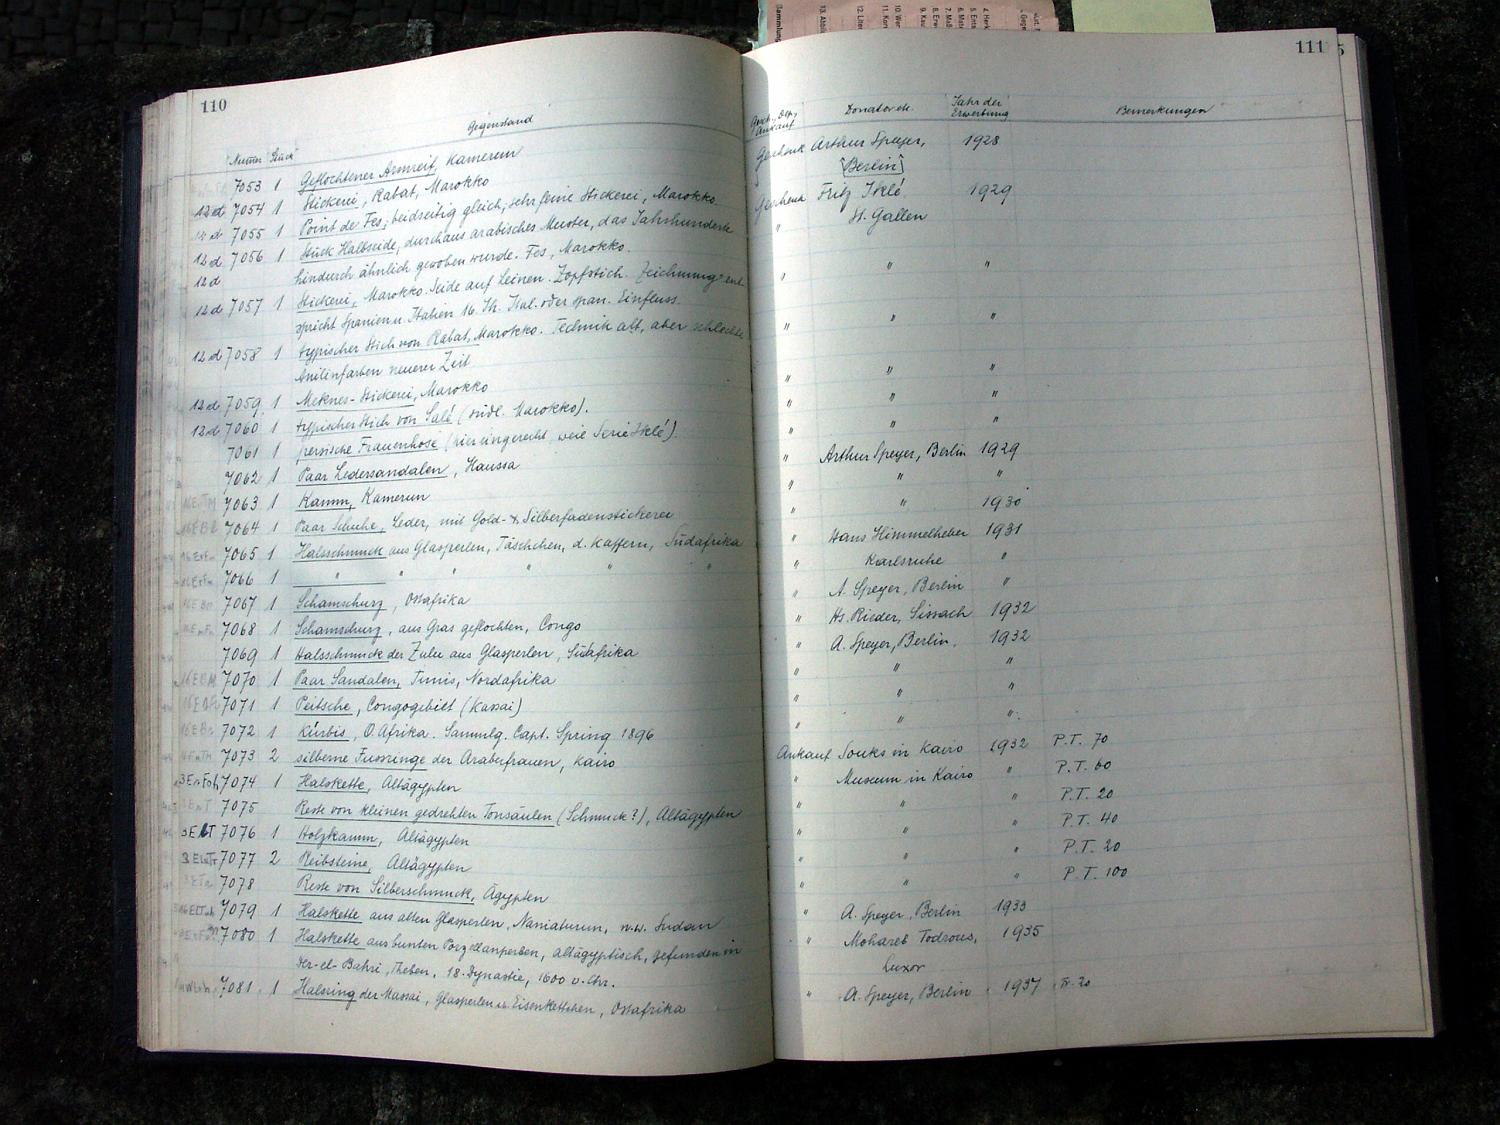 110
Gegenstand
Numer Stück
7053 1 Geflochtener Armreif, Kamerun
12d 7054 1 Stickerei, Rabat, Marokko
12d 7055 1 Point de Fes, beidseitig gleich, sehr feine Stickerei, Marokko.
12d 7056 1 Stück Halbseide, durchaus arabisches Muster, das Jahrhunderte
12d hindurch ähnlich gewoben wurde. Fes, Marokko.
12d 7057 1 Stickerei, Marokko. Seide auf Leinen. Zopfstich. Zeichnung ent-
spricht Spanien u. Italien 16. Jh. Ital. oder span. Einfluss.
12d 7058 1 typischer Stich von Rabat, Marokko. Technik alt, aber schlechte
Anilinfarben neuerer Zeit
12d 7059 1 Meknes-Stickerei, Marokko
12d 7060 1 typischer Stich von Salé (südl. Marokko).
7061 1 persische Frauenhose (hier eingereiht, weil Serie Iklé).
7062 1 Paar Ledersandalen, Haussa
7063 1 Kamm, Kamerun
7064 1 Paar Schuhe, Leder, mit Gold- & Silberfadenstickerei
7065 1 Halsschmuck aus Glasperlen, Täschchen, d. Kaffern, Südafrika
7066 1 " " " " " "
7067 1 Schamschurz, Ostafrika
7068 1 Schamschurz, aus Gras geflochten, Congo
7069 1 Halsschmuck der Zulu aus Glasperlen, Südafrika
7070 1 Paar Sandalen, Tunis, Nordafrika
7071 1 Peitsche, Congogebiet (Kassai)
7072 1 Kürbis, O. Afrika. Sammlg. Capt. Spring 1896
7073 2 silberne Fussringe der Araberfrauen, Kairo
7074 1 Halskette, Altägypten
7075 Reste von kleinen gedrehten Tonsäulen (Schmuck?), Altägypten
7076 1 Holzkamm, Altägypten
7077 2 Reibsteine, Altägypten
7078 Reste von Silberschmuck, Ägypten
7079 1 Halskette aus alten Glasperlen, Naniaturum, n.w. Sudan
7080 1 Halskette aus bunten Porzellanperlen, altägyptisch, gefunden in
Der-el-Bahri, Theben, 18. Dynastie, 1600 v. Chr.
7081 1 Halsring der Massai, Glasperlen u. Eisenkettchen, Ostafrika
111
Gesch., Dep., Ankauf Donator etc. Jahr der Erwerbung Bemerkungen
Geschenk Arthur Speyer, 1928
[Berlin]
Geschenk Fritz Iklé 1929
" St. Gallen
" " "
" " "
" " "
" " "
" " "
" Arthur Speyer, Berlin 1929
" " "
" " 1930
" Hans Himmelheber 1931
" Karlsruhe "
" A. Speyer, Berlin "
" Hs. Rieder, Sissach 1932
" A. Speyer, Berlin. 1932
" " "
" " "
" " "
Ankauf Souks in Kairo 1932 P.T. 70
" Museum in Kairo " P.T. 60
" " " P.T. 20
" " " P.T. 40
" " " P.T. 20
" " " P.T. 100
" A. Speyer, Berlin 1933
" Mohareb Todrous, 1935
Luxor
" A. Speyer, Berlin 1937 Fr. 20